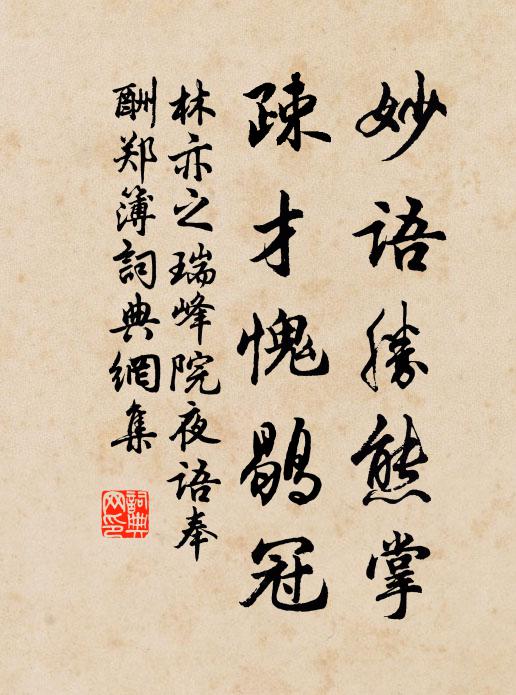 妙语勝熊掌
疎才愧鶡冠
林亦之瑞峰院夜语奉
酬郑簿詞典網集
詞典网印